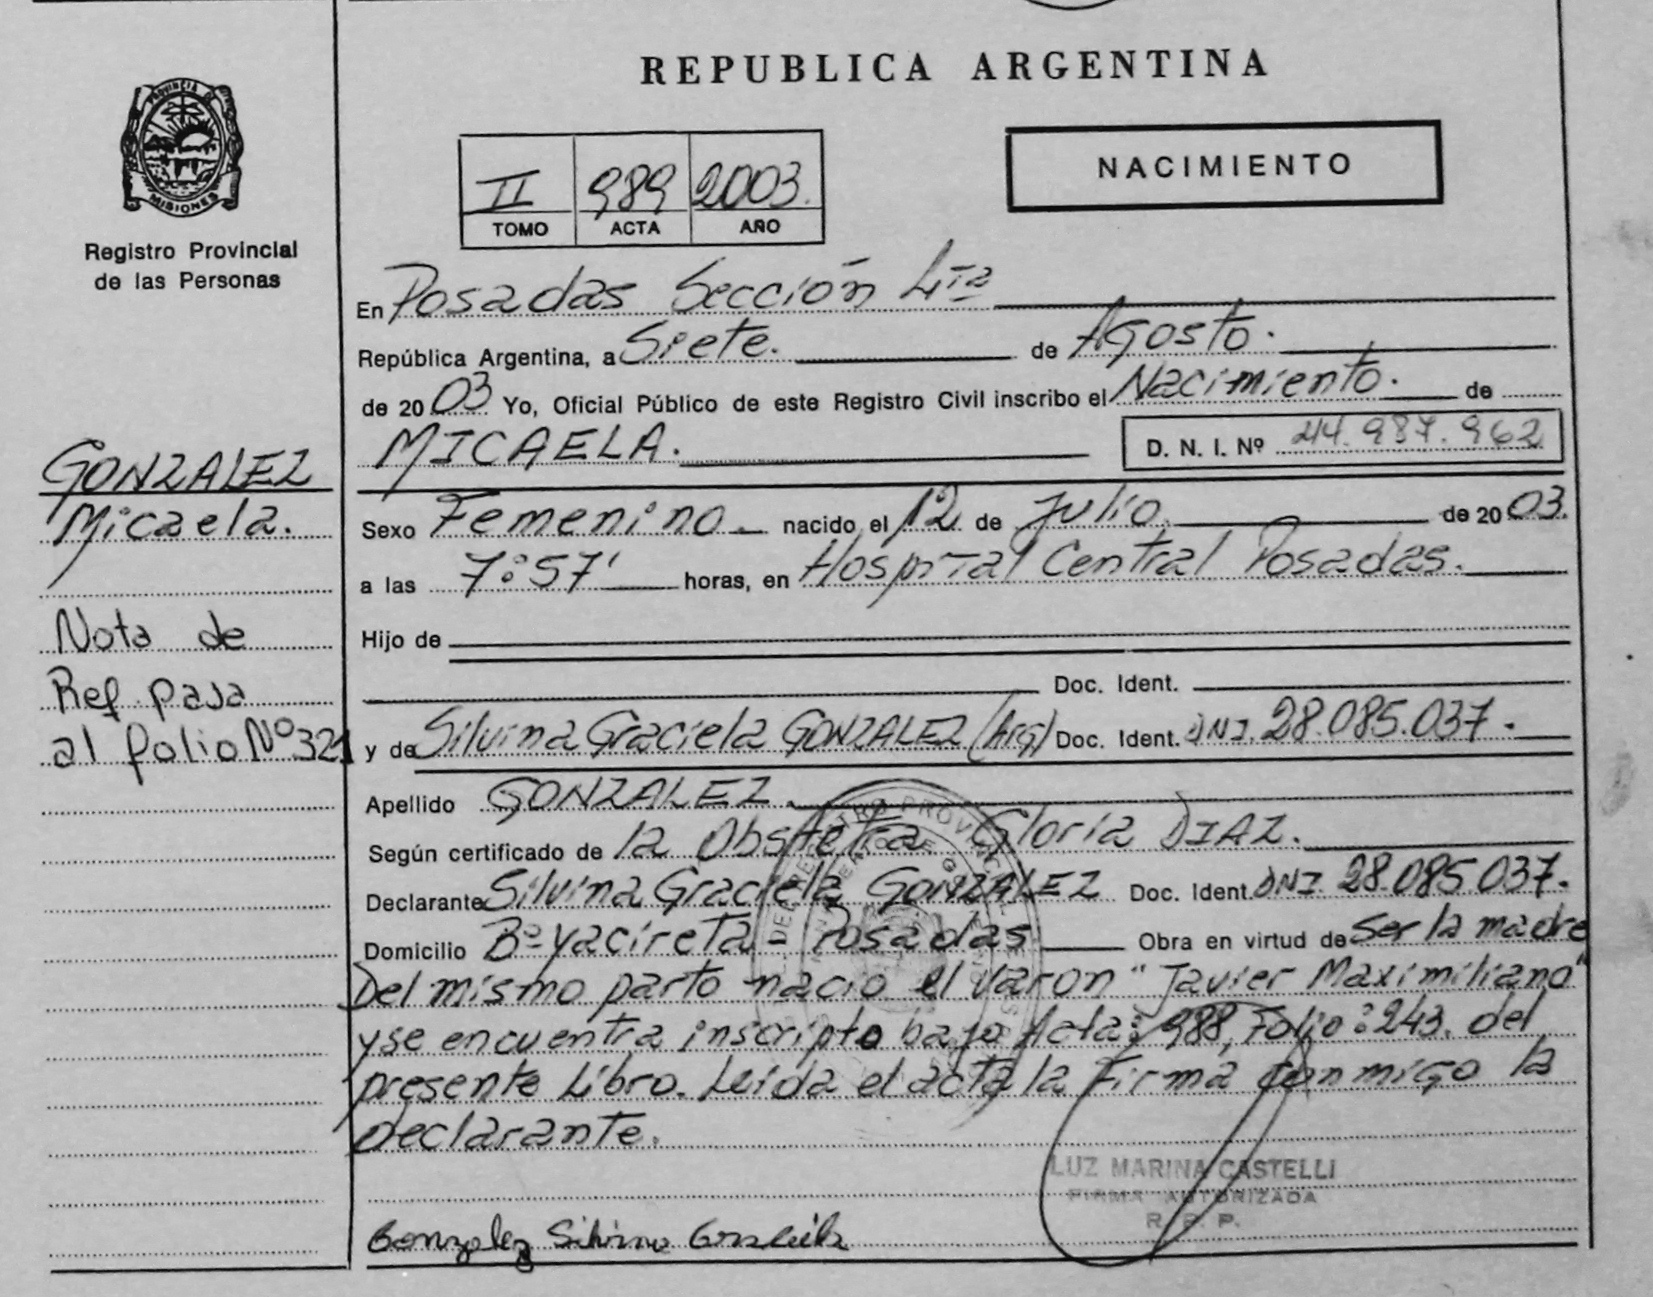 REPUBLICA ARGENTINA
PROVINCIA DE
MISIONES
Registro Provincial
de las Personas
II 989 2003.
TOMO ACTA AÑO
NACIMIENTO
En Posadas Sección 4ta
República Argentina, a Siete. de Agosto.
de 20 03 Yo, Oficial Público de este Registro Civil inscribo el Nacimiento. de
MICAELA. D. N. I. Nº 44.987.962
GONZALEZ
Micaela.
Sexo Femenino nacido el 12 de Julio de 20 03.
a las 7:57' horas, en Hospital Central Posadas.
Nota de
Ref. pasa
al folio Nº 321
Hijo de
Doc. Ident.
y de Silvina Graciela GONZALEZ (Arg) Doc. Ident. DNI. 28.085.037.
Apellido GONZALEZ.
Según certificado de la Obstetra Gloria DIAZ.
Declarante Silvina Graciela GONZALEZ Doc. Ident. DNI 28.085.037.
Domicilio Bº Yacireta - Posadas Obra en virtud de ser la madre
Del mismo parto nacio el varon "Javier Maximiliano"
y se encuentra inscripto bajo Acta: 988, Folio: 243. del
presente Libro. Leida el acta la Firma conmigo la
Declarante.
LUZ MARINA CASTELLI
FIRMA AUTORIZADA
R. P. P.
Gonzalez Silvina Graciela